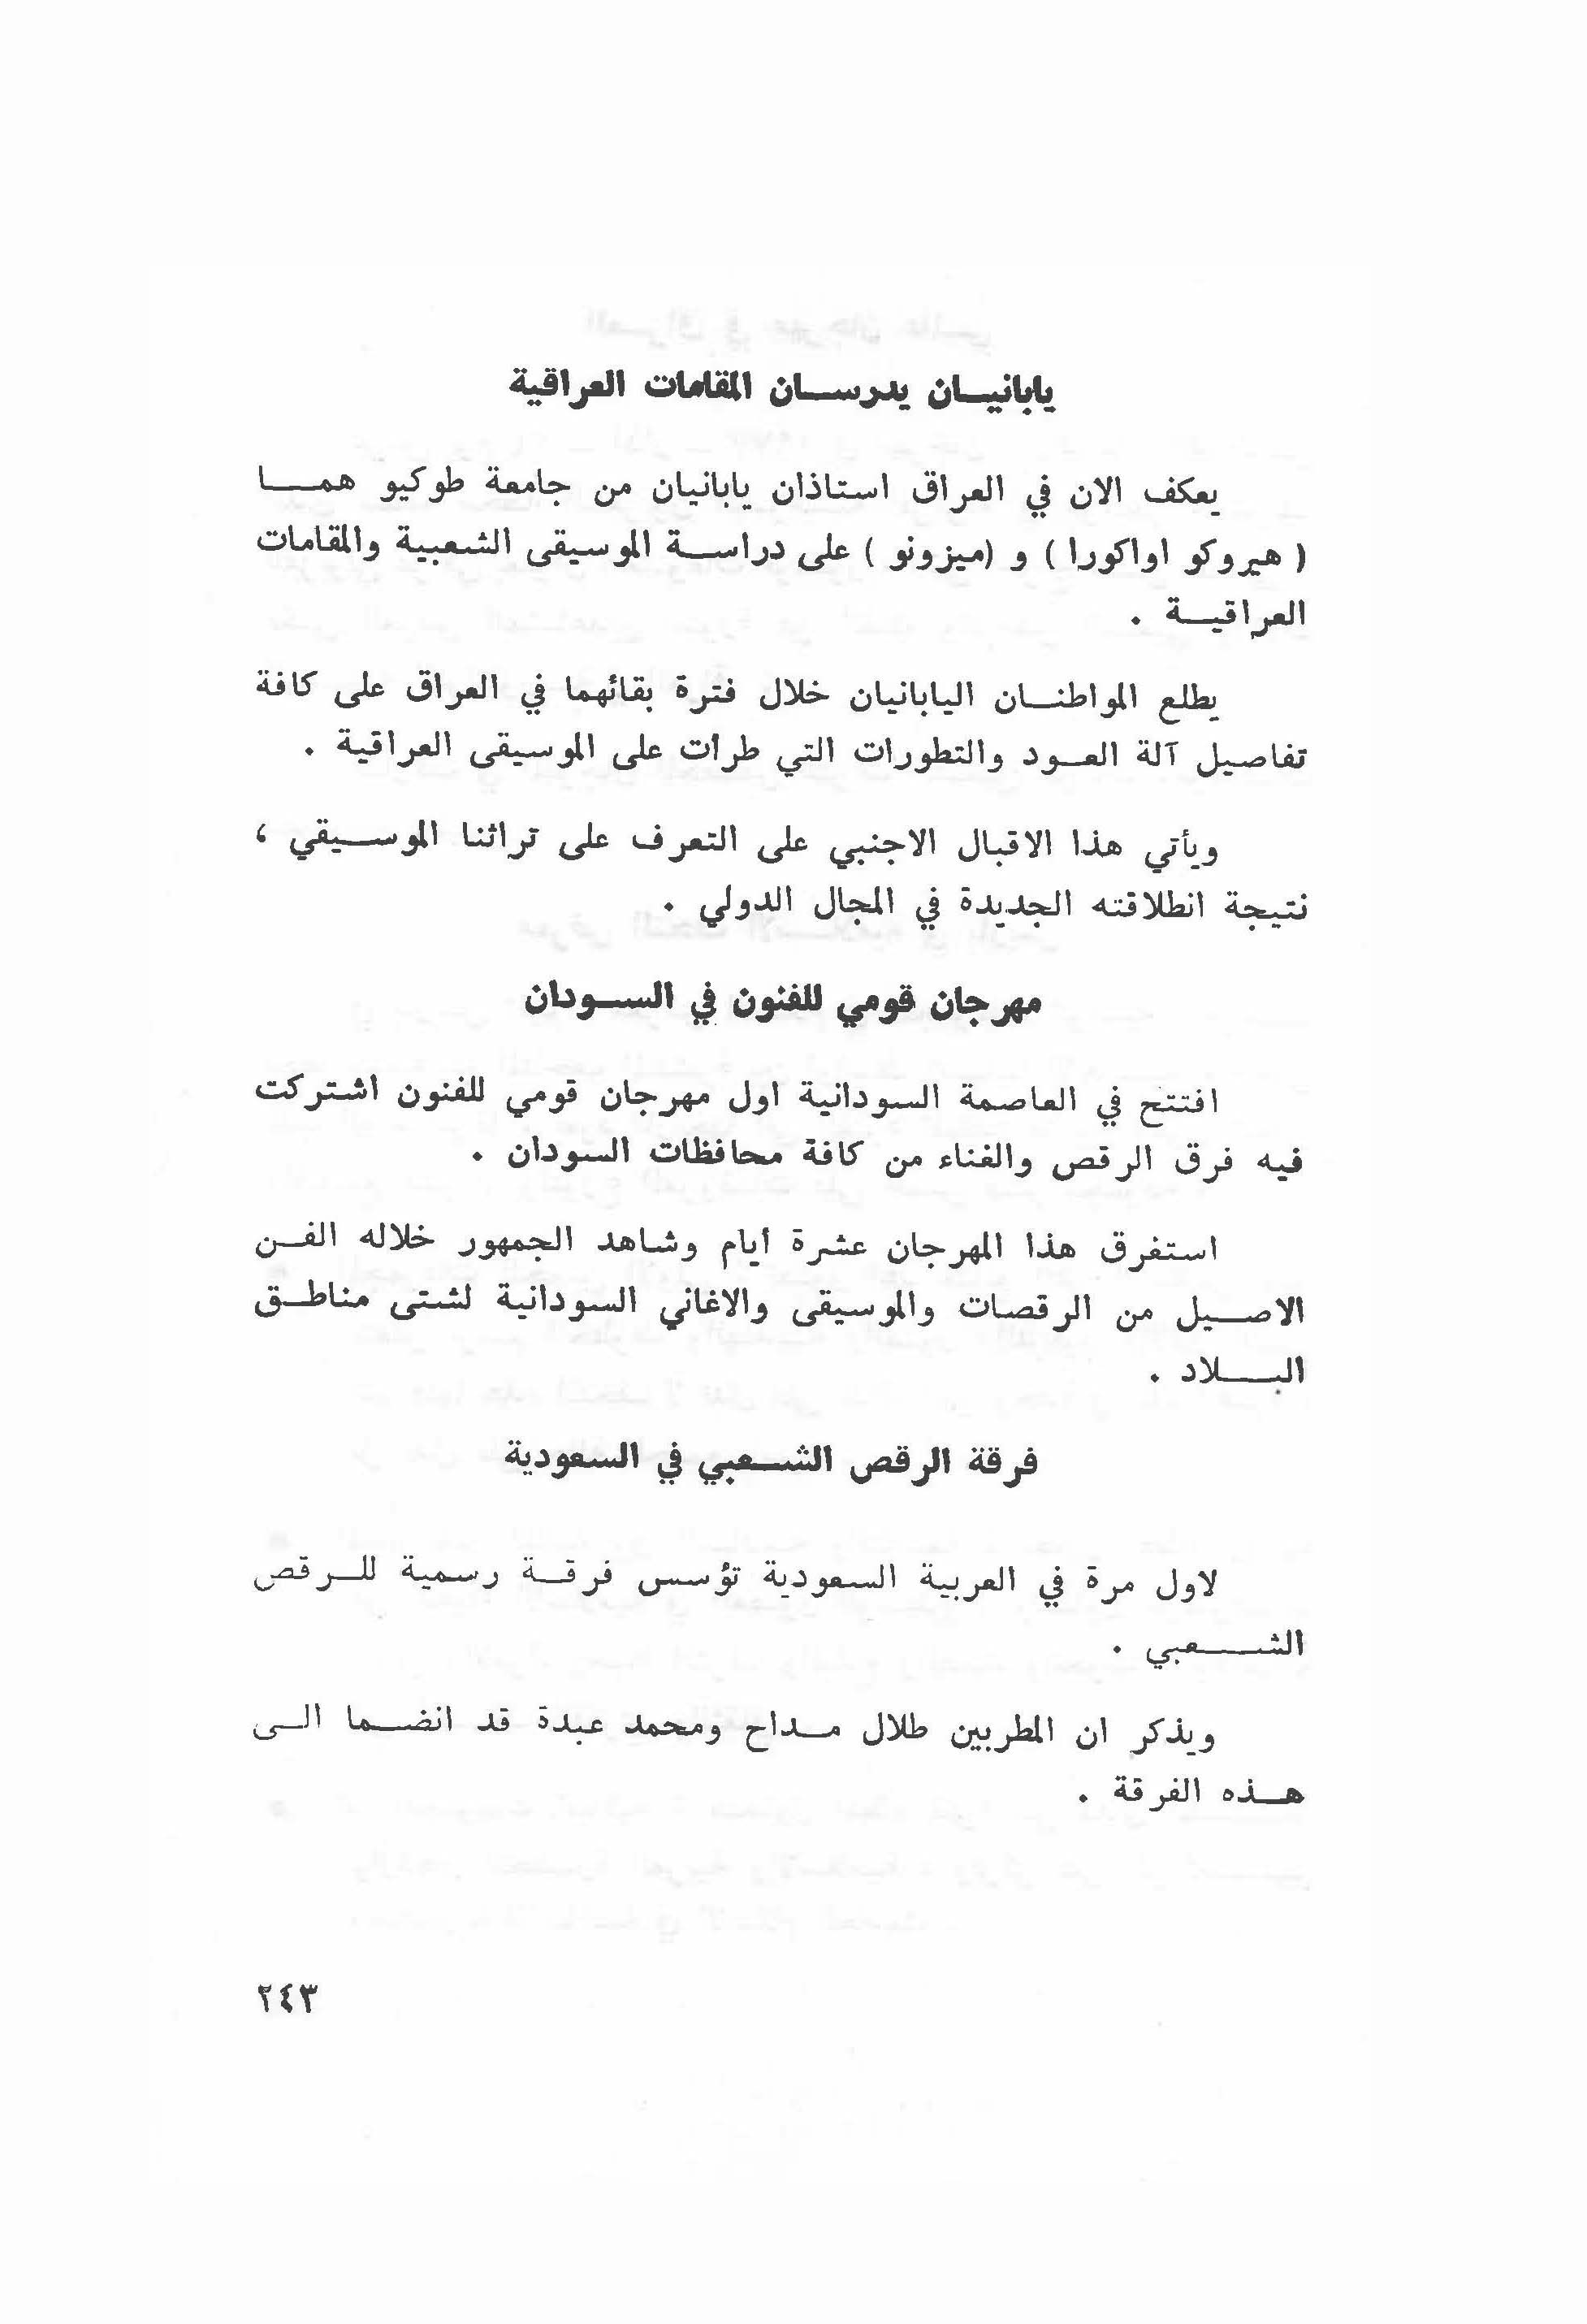 يابانيان يدرسان المقامات العراقية
يعكف الان في العراق استاذان يابانيان من جامعة طوكيو هما
( هيروكو اواكورا ) و (ميزونو ) على دراسة الموسيقى الشعبية والمقامات
العراقية .
يطلع المواطنان اليابانيان خلال فترة بقائهما في العراق على كافة
تفاصيل آلة العود والتطورات التي طرأت على الموسيقى العراقية .
ويأتي هذا الاقبال الاجنبي على التعرف على تراثنا الموسيقي ،
نتيجة انطلاقته الجديدة في المجال الدولي .
مهرجان قومي للفنون في السودان
افتتح في العاصمة السودانية اول مهرجان قومي للفنون اشتركت
فيه فرق الرقص والغناء من كافة محافظات السودان .
استغرق هذا المهرجان عشرة ايام وشاهد الجمهور خلاله الفن
الاصيل من الرقصات والموسيقى والاغاني السودانية لشتى مناطق
البلاد .
فرقة الرقص الشعبي في السعودية
لاول مرة في العربية السعودية تؤسس فرقة رسمية للرقص
الشعبي .
ويذكر ان المطربين طلال مداح ومحمد عبدة قد انضما الى
هذه الفرقة .
٢٤٣